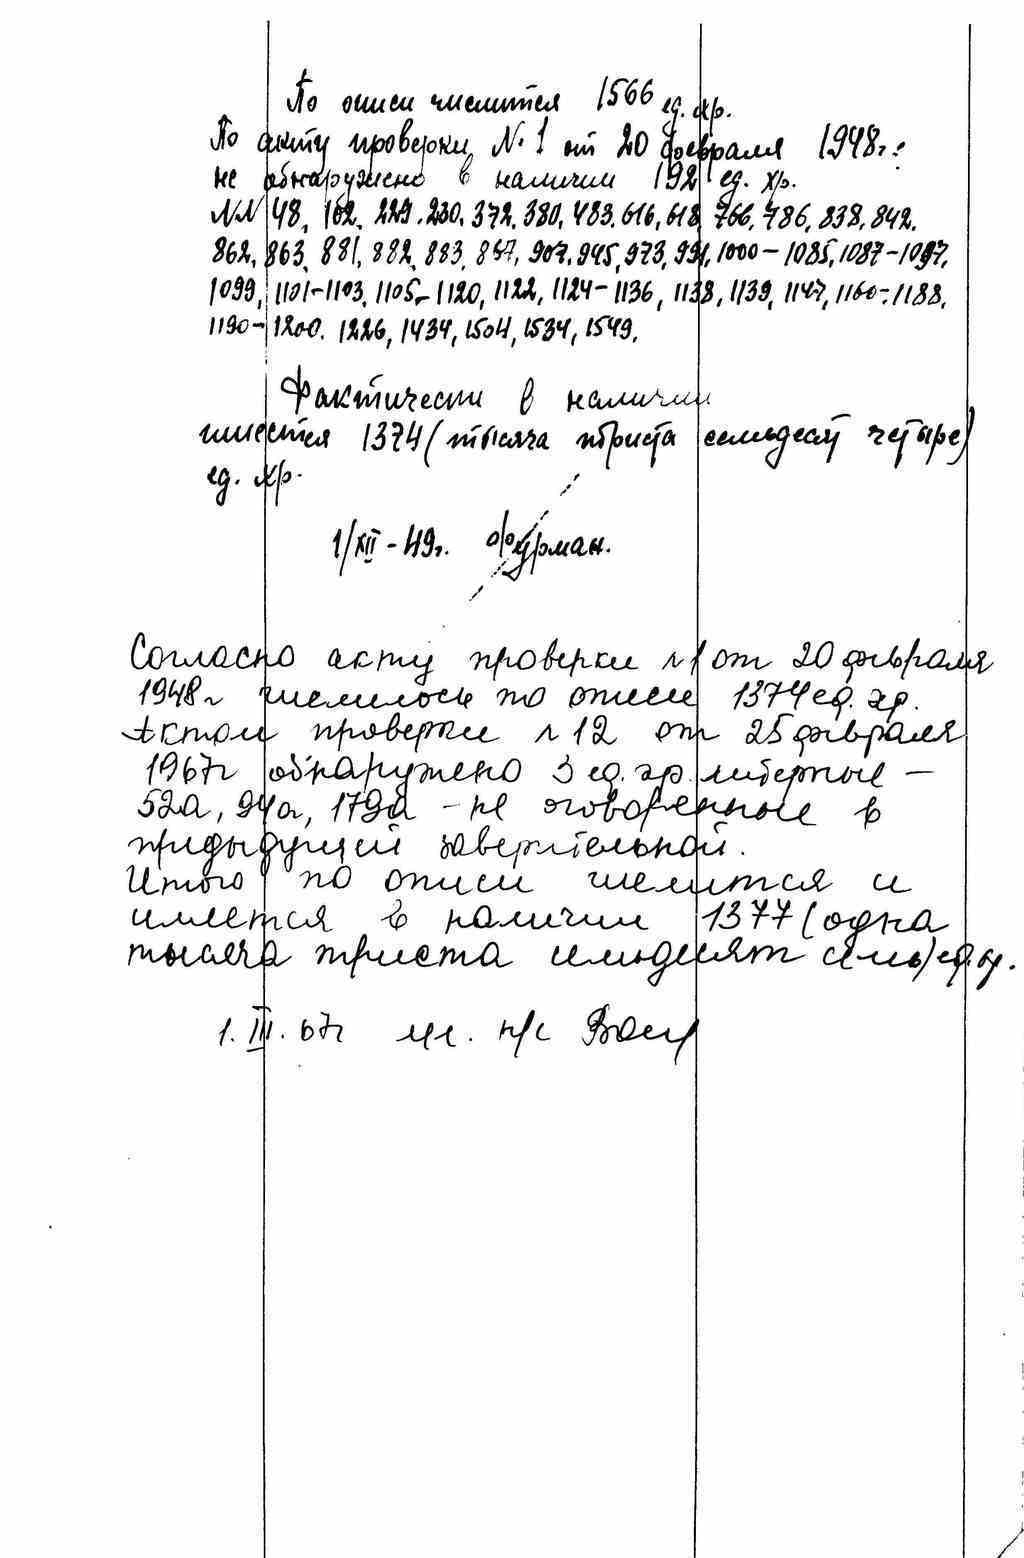 По описи числится 1566 ед. хр.
По акту проверки № 1 от 20 февраля 1948г.:
не обнаружено в наличии 192 ед. хр.
NN 48, 102, 229. 230. 372. 380, 483. 616, 618, 766, 786, 838, 842.
862, 863, 881, 882, 883, 887, 907, 945, 973, 991, 1000 – 1085, 1087 – 1097,
1099, 1101–1103, 1105 – 1120, 1122, 1124 – 1136, 1138, 1139, 1147, 1160 – 1188,
1190 – 1200. 1226, 1434, 1504, 1534, 1549.
Фактически в наличии
имеется 1374 (тысяча триста семьдесят четыре)
ед. хр.
1/XII – 49г. Фурман.
Согласно акту проверки №1 от 20 февраля
1948г числилось по описи 1374 ед. хр.
Актом проверки № 12 от 25 февраля
1967г обнаружено 3 ед. хр. литерные –
52а, 94а, 179а – не оговоренные в
предыдущей заверительной.
Итого по описи числится и
имеется в наличии 1377 (одна
тысяча триста семьдесят семь) ед. хр.
1. III. 67г мл. н/с